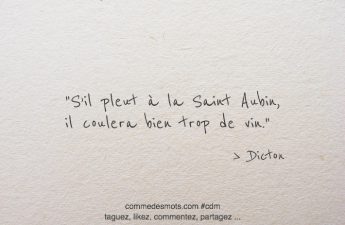 "S'il pleut à la Saint Aubin,
il coulera bien trop de vin."
> Dicton
commedesmots.com #cdm
taguez, likez, commentez, partagez ...